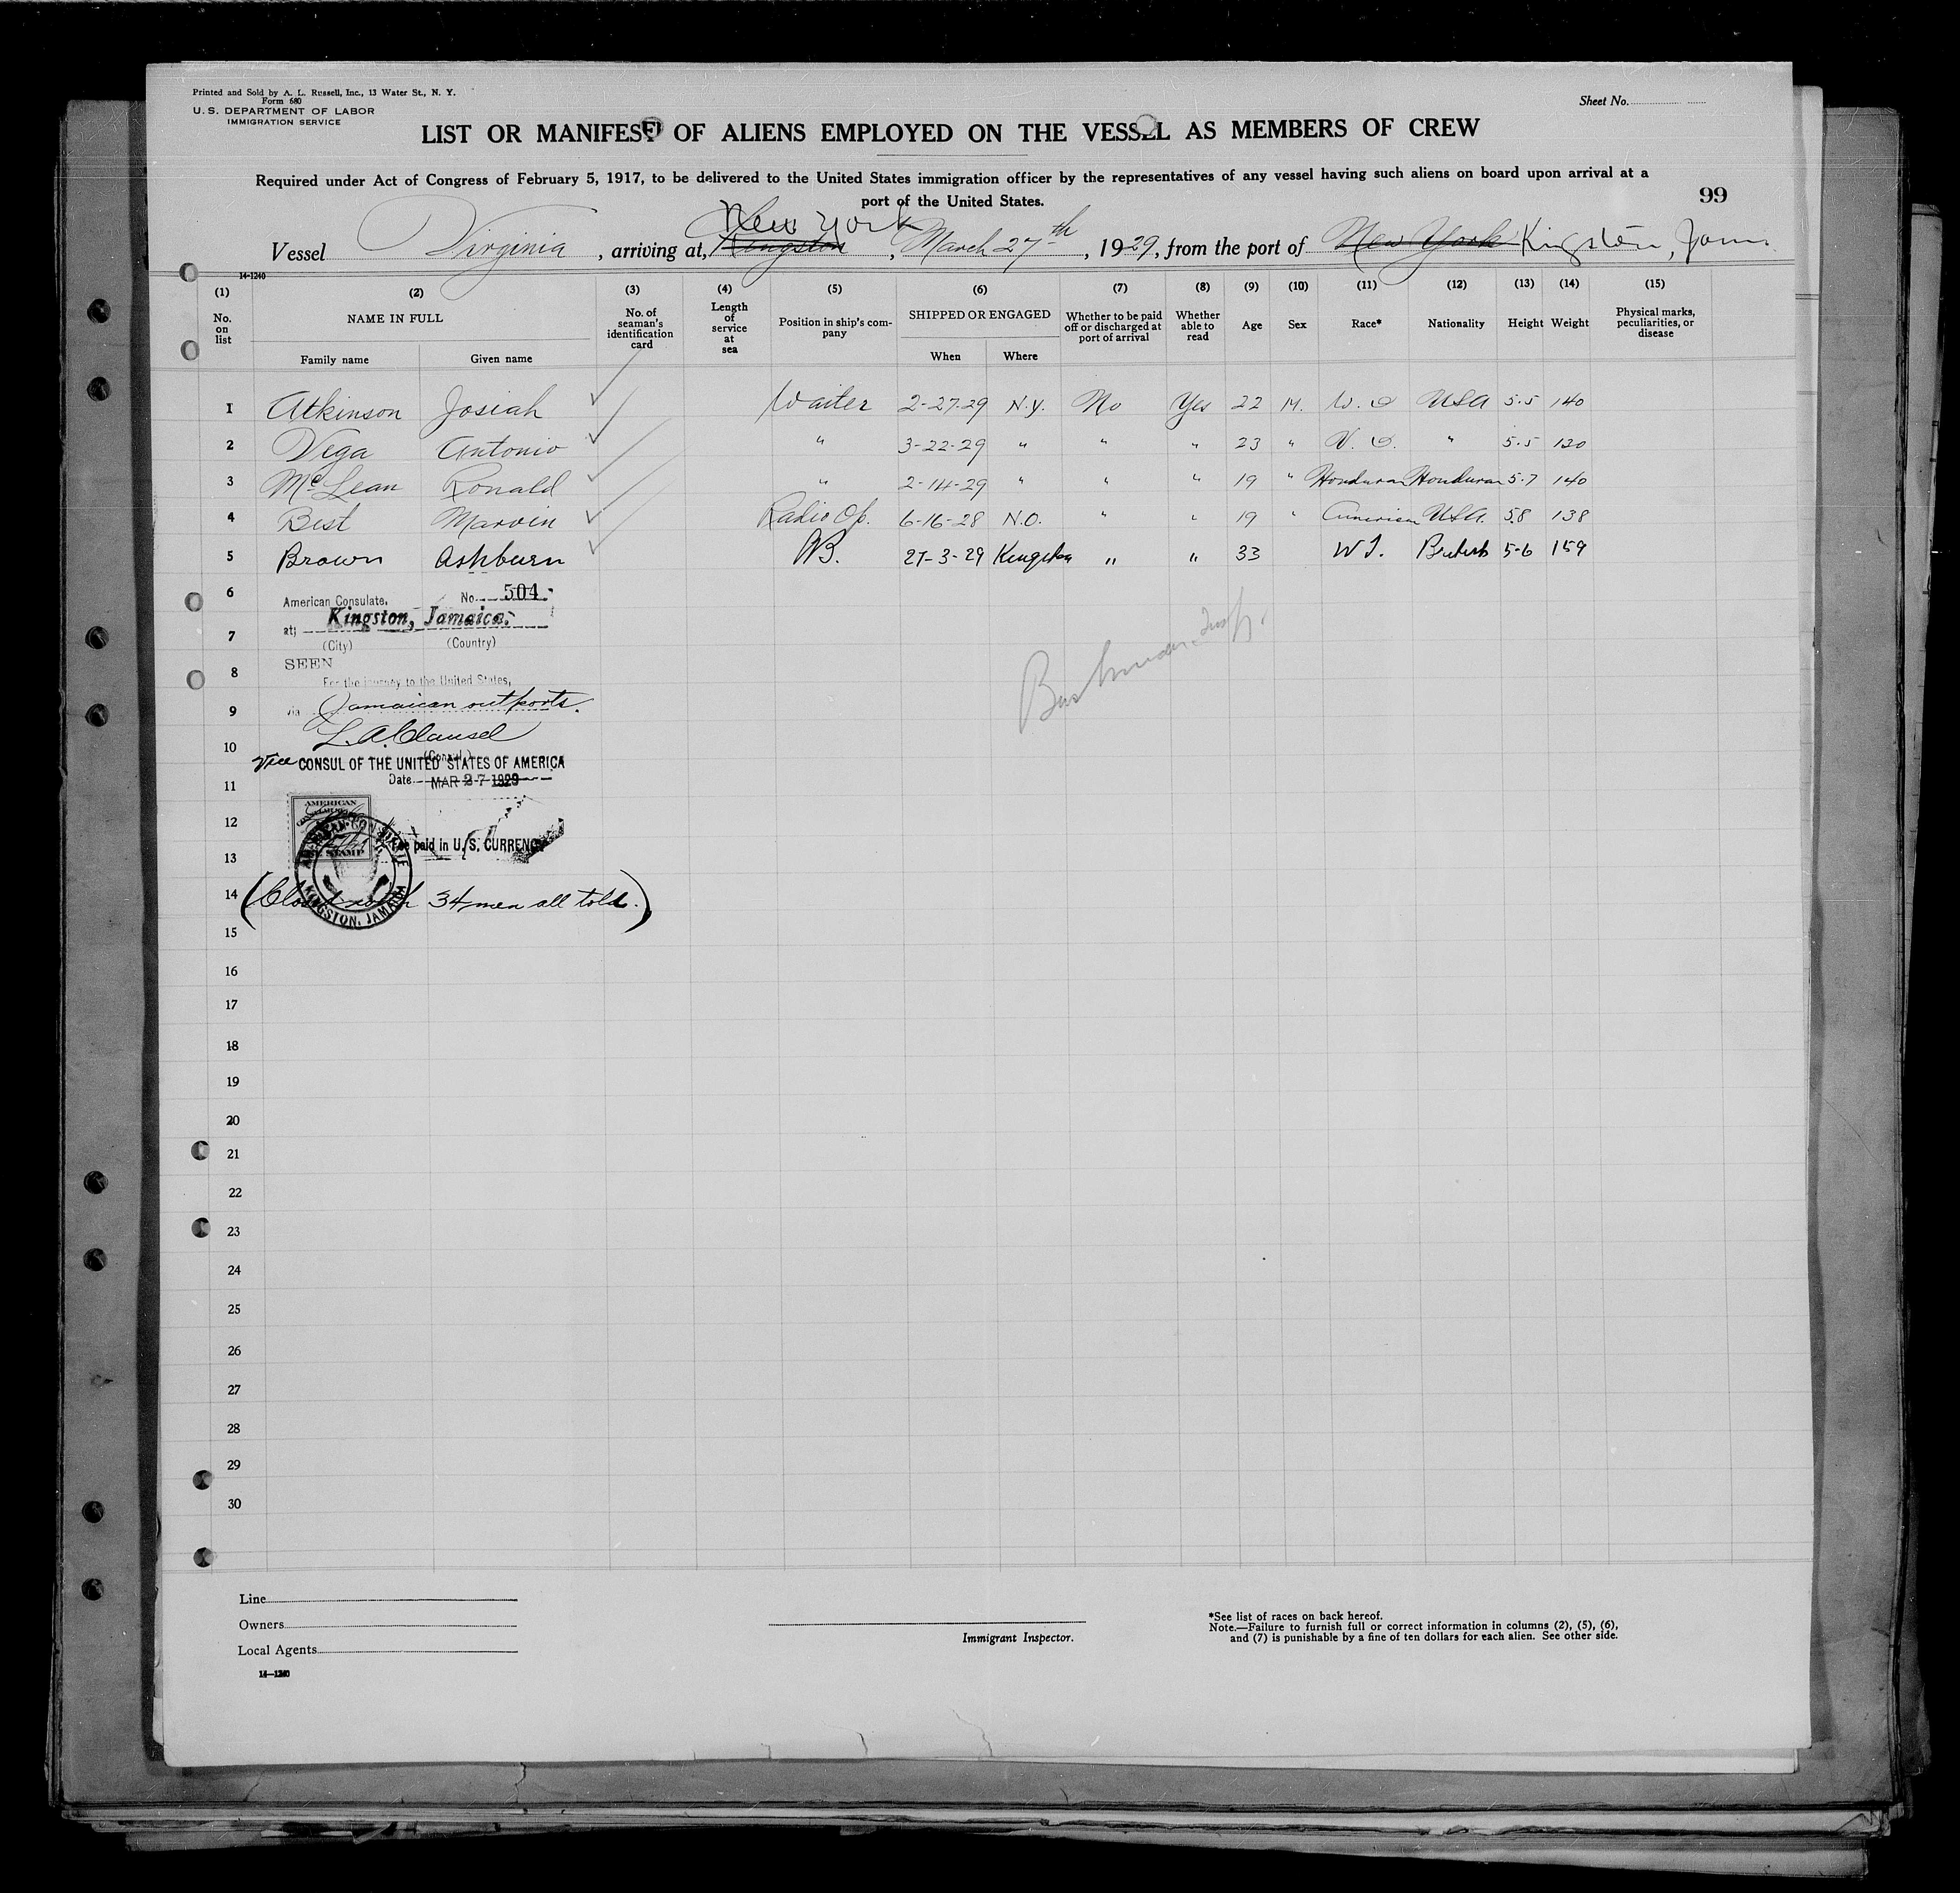 Printed and Sold by A. L. Russell, Inc., 13 Water St., N. Y.
Form 680
U. S. DEPARTMENT OF LABOR
IMMIGRATION SERVICE
Sheet No.
LIST OR MANIFEST OF ALIENS EMPLOYED ON THE VESSEL AS MEMBERS OF CREW
Required under Act of Congress of February 5, 1917, to be delivered to the United States immigration officer by the representatives of any vessel having such aliens on board upon arrival at a
port of the United States.
99
New York
Vessel Virginia, arriving at, Kingston, March 27th, 1929, from the port of New York Kingston, Jam.
14-1240
(1) (2) (3) (4) (5) (6) (7) (8) (9) (10) (11) (12) (13) (14) (15)
No. on list NAME IN FULL Family name Given name No. of seaman's identification card Length of service at sea Position in ship's company SHIPPED OR ENGAGED When Where Whether to be paid off or discharged at port of arrival Whether able to read Age Sex Race* Nationality Height Weight Physical marks, peculiarities, or disease
1 Atkinson Josiah Waiter 2-27-29 N.Y. No Yes 22 M. W. USA 5.5 140
2 Vega Antonio " 3-22-29 " " " 23 " " 5.5 130
3 McLean Ronald " 2-14-29 " " " 19 " Honduran Honduran 5.7 140
4 Best Marvin Radio Op. 6-16-28 N.O. " " 19 " American USA. 5.8 138
5 Brown Ashburn 27-3-29 Kingston " " 33 W I. British 5-6 159
6
American Consulate, No. 504
at; Kingston, Jamaica.
7
(City) (Country)
SEEN
8
For the journey to the United States,
9
via Jamaican outports.
L. A. Clausel
10
(Consul)
Vice CONSUL OF THE UNITED STATES OF AMERICA
Date MAR 27 1929
11
AMERICAN
12
STAMP
Fee paid in U. S. CURRENCY
13
14
34 men all told.)
KINGSTON, JAMAICA
15
16
17
18
19
20
21
22
23
24
25
26
27
28
29
30
Line
Owners
Local Agents
14-1240
Immigrant Inspector.
*See list of races on back hereof.
Note.—Failure to furnish full or correct information in columns (2), (5), (6),
and (7) is punishable by a fine of ten dollars for each alien. See other side.